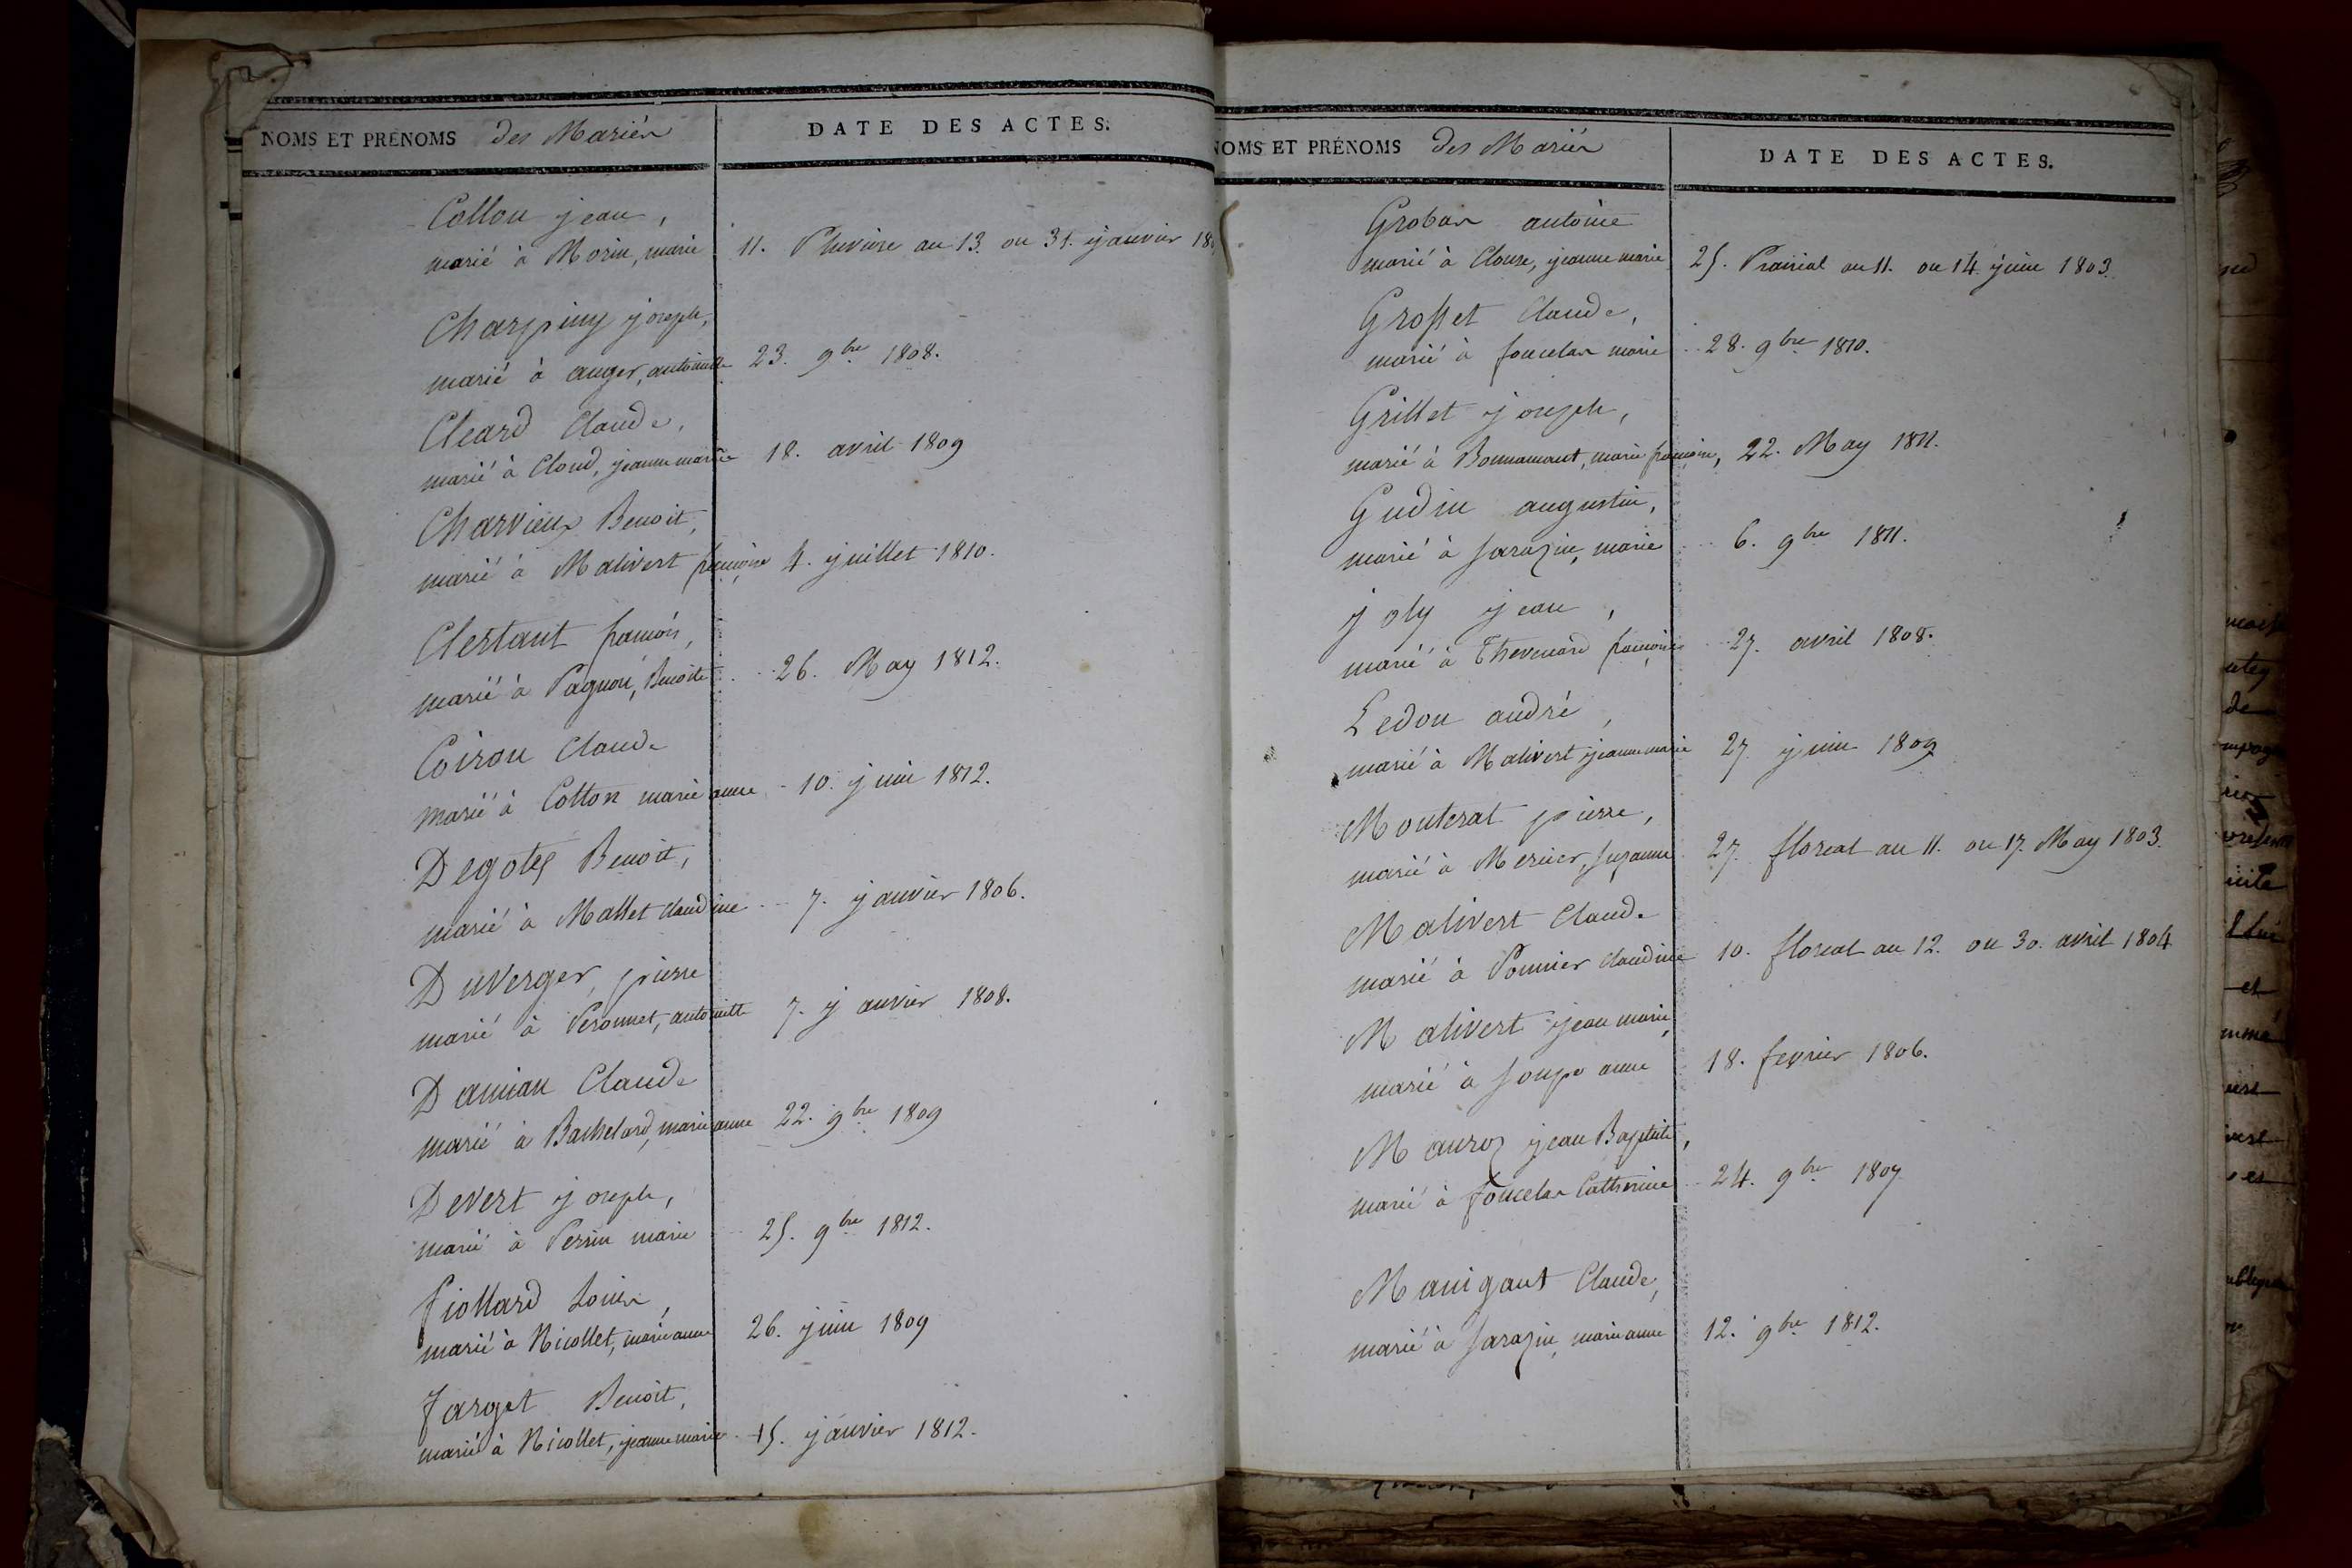 NOMS ET PRÉNOMS des Mariés
DATE DES ACTES.
Collon jean,
marié à Morin, marie 11. Pluviose an 13. ou 31. janvier 18
Charpiny joseph,
marié à auger, antoinette 23. 9bre 1808.
Cleard Claude,
marié à Cloud, jeanne marie 18. avril 1809
Charvieux Benoit,
marié à Malivert françoise 4. juillet 1810.
Clertant françois,
marié à Pagnon, Benoite 26. May 1812.
Coiron Claude
marié à Cotton marie anne 10. juin 1812.
Degotey Benoit,
marié à Mallet claudine 7. janvier 1806.
Duverger, pierre
marié à Peronnet, antoinette 7. janvier 1808.
Damian Claude
marié à Bachelard, marie anne 22. 9bre 1809
Devert joseph,
marié à Persin marie 25. 9bre 1812.
fiollard Louis,
marié à Nicollet, marie anne 26. juin 1809
farget Benoit,
marié à Nicollet, jeanne marie 15. janvier 1812.
NOMS ET PRÉNOMS des Mariés
DATE DES ACTES.
Grobas antoine
marié à Clouse, jeanne marie 25. Prairial an 11. ou 14 juin 1803.
Grosset Claude,
marié à foucelas marie 28. 9bre 1810.
Grillet joseph,
marié à Bonnamant, marie françoise, 22. May 1811.
Gudin augustin,
marié à Sarazin, marie 6. 9bre 1811.
joly jean,
marié à Thevenard françoise 27. avril 1808.
Ledou andré,
marié à Malivert jeanne marie 27 juin 1809
Monterat pierre,
marié à Mercier, Suzanne 27. floreal an 11. ou 17. May 1803.
Malivert Claude
marié à Ponnier claudine 10. floreal an 12. ou 30. avril 1804
Malivert jean marie,
marié à Soupe anne 18. fevrier 1806.
Mauroz jean Baptiste,
marié à foucelas Catherine 24. 9bre 1807
Manigant Claude,
marié à Sarazin, marie anne 12. 9bre 1812.